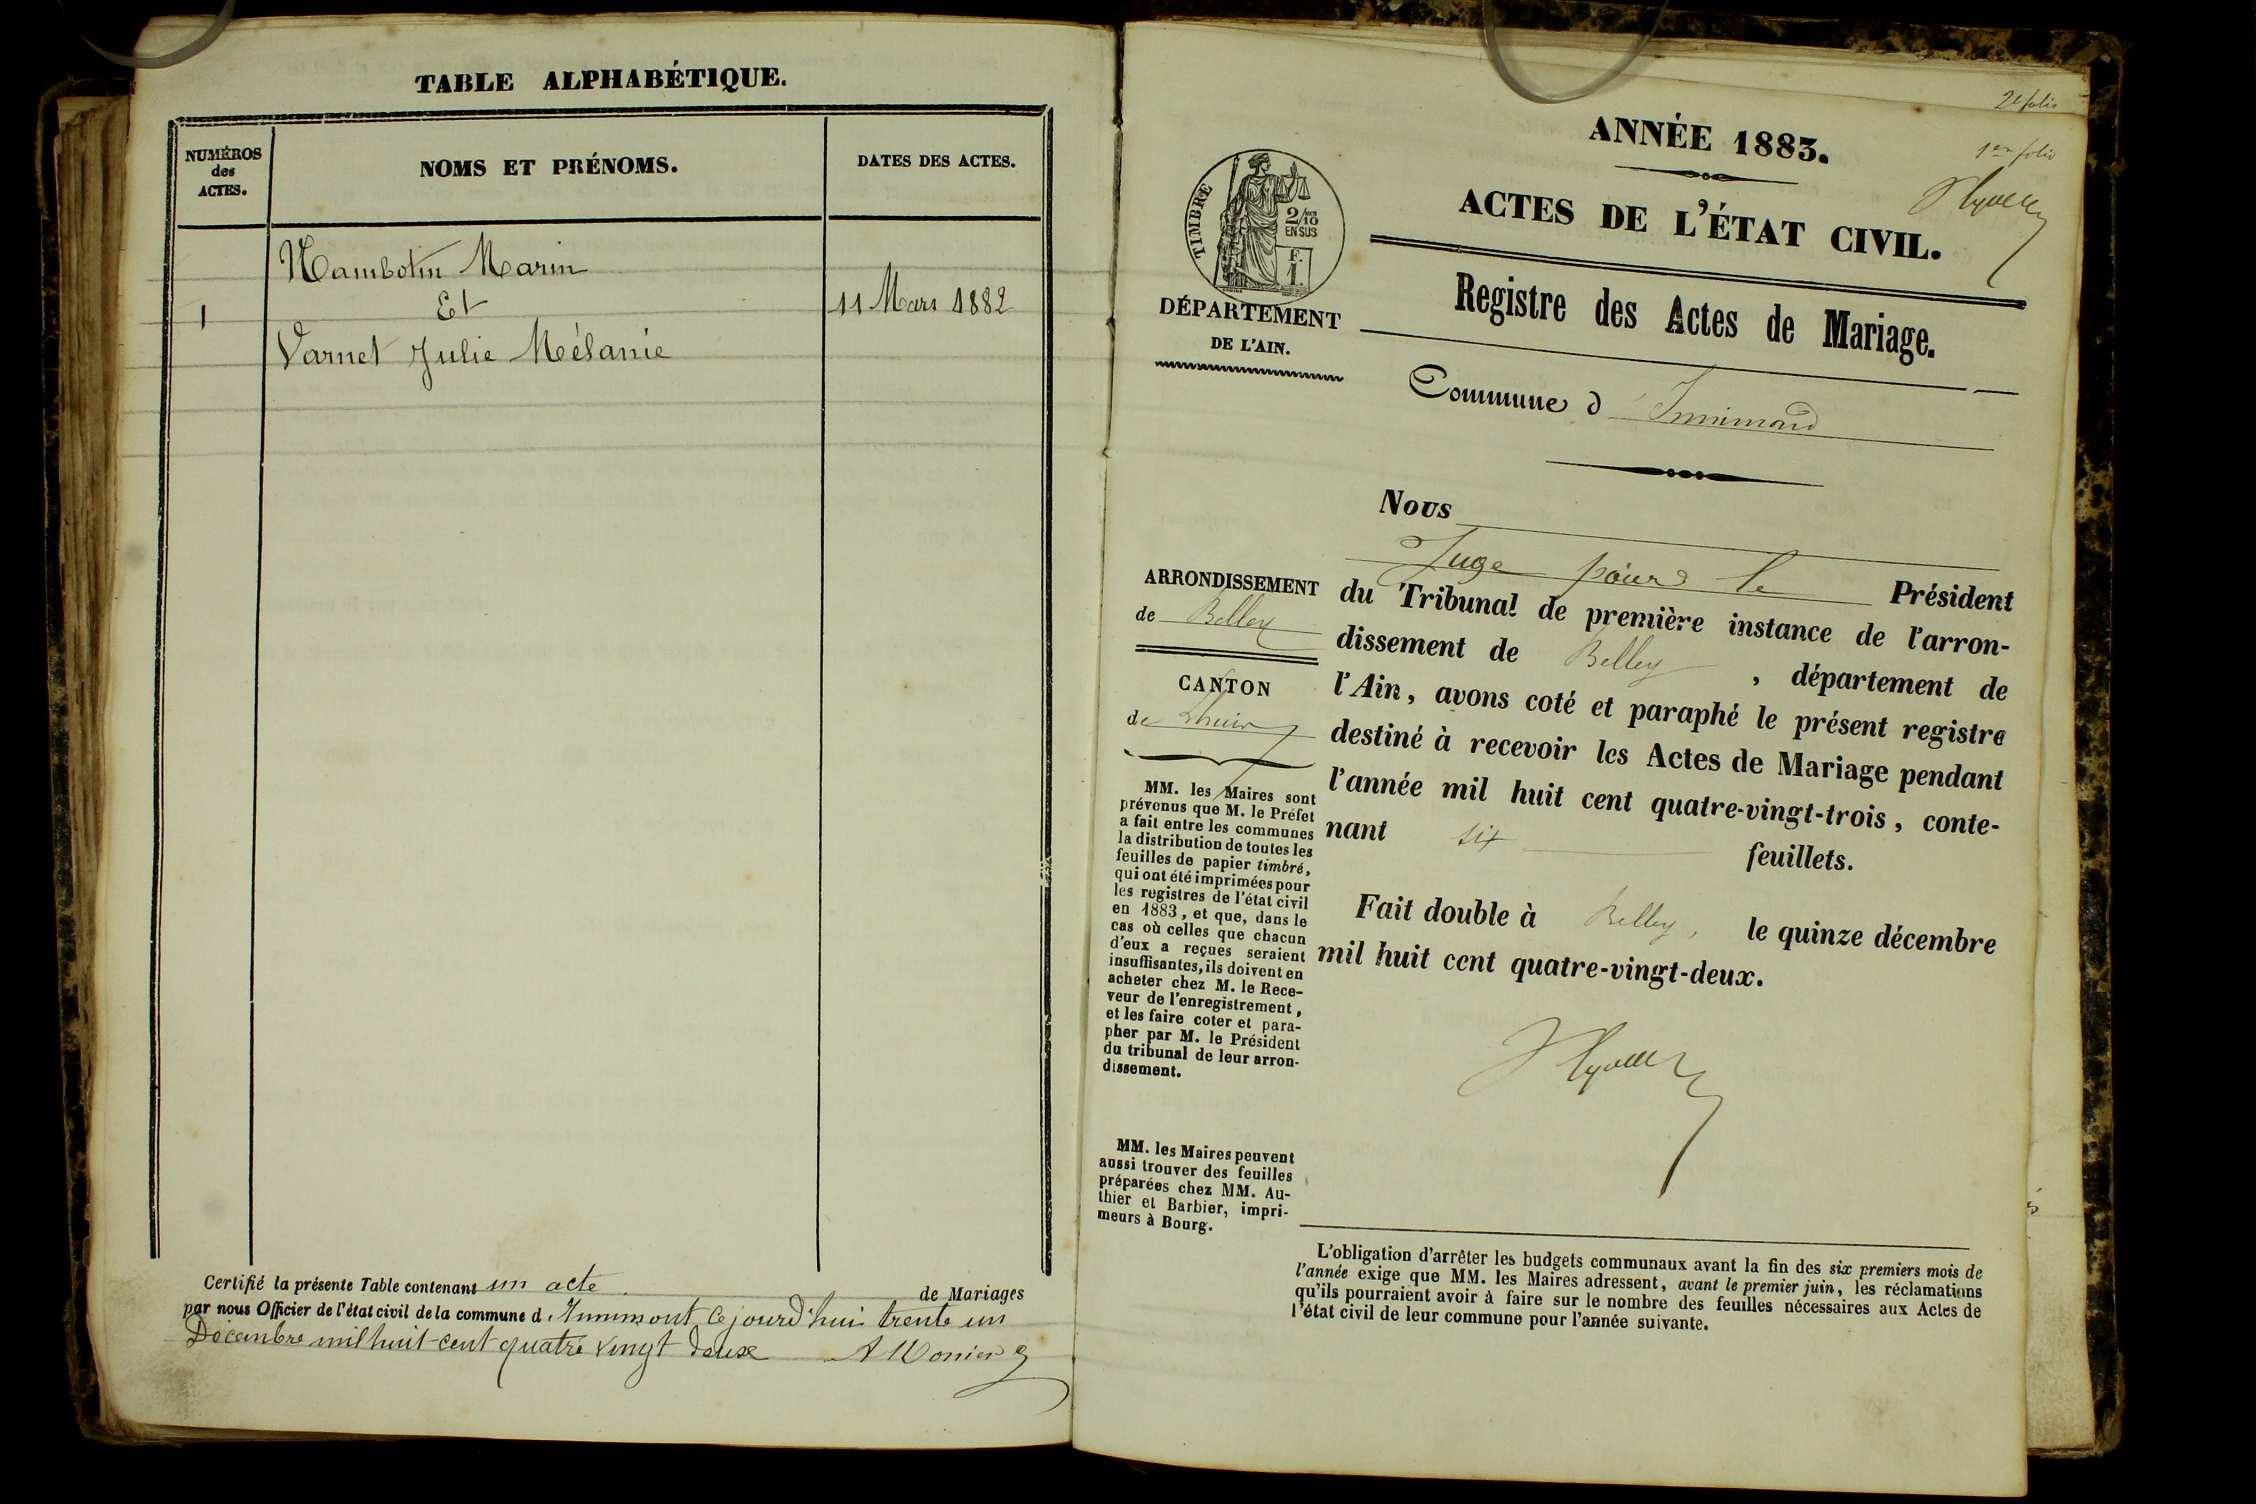 TABLE ALPHABÉTIQUE.
NUMÉROS
des
ACTES.
NOMS ET PRÉNOMS.
DATES DES ACTES.
Mambotin Marin
1
Et
11 Mars 1882
Varnet Julie Mélanie
Certifié la présente Table contenant un acte de Mariages
par nous Officier de l'état civil de la commune d Innimont Ce jourd'hui trente un
Décembre mil huit cent quatre vingt deux A Monier
2e folio
1er folio
ANNÉE 1883.
ACTES DE L'ÉTAT CIVIL.
TIMBRE
2/10
EN SUS
F.
1.
DÉPARTEMENT
DE L'AIN.
Registre des Actes de Mariage.
Commune d Innimond
Nous
Juge pour le Président
du Tribunal de première instance de l'arron-
dissement de Belley , département de
l'Ain, avons coté et paraphé le présent registre
destiné à recevoir les Actes de Mariage pendant
l'année mil huit cent quatre-vingt-trois, conte-
nant six feuillets.
Fait double à Belley, le quinze décembre
mil huit cent quatre-vingt-deux.
ARRONDISSEMENT
de Belley
CANTON
de Lhuis
MM. les Maires sont
prévenus que M. le Préfet
a fait entre les communes
la distribution de toutes les
feuilles de papier timbré,
qui ont été imprimées pour
les registres de l'état civil
en 1883, et que, dans le
cas où celles que chacun
d'eux a reçues seraient
insuffisantes, ils doivent en
acheter chez M. le Rece-
veur de l'enregistrement,
et les faire coter et para-
pher par M. le Président
du tribunal de leur arron-
dissement.
MM. les Maires peuvent
aussi trouver des feuilles
préparées chez MM. Au-
thier et Barbier, impri-
meurs à Bourg.
L'obligation d'arrêter les budgets communaux avant la fin des six premiers mois de
l'année exige que MM. les Maires adressent, avant le premier juin, les réclamations
qu'ils pourraient avoir à faire sur le nombre des feuilles nécessaires aux Actes de
l'état civil de leur commune pour l'année suivante.